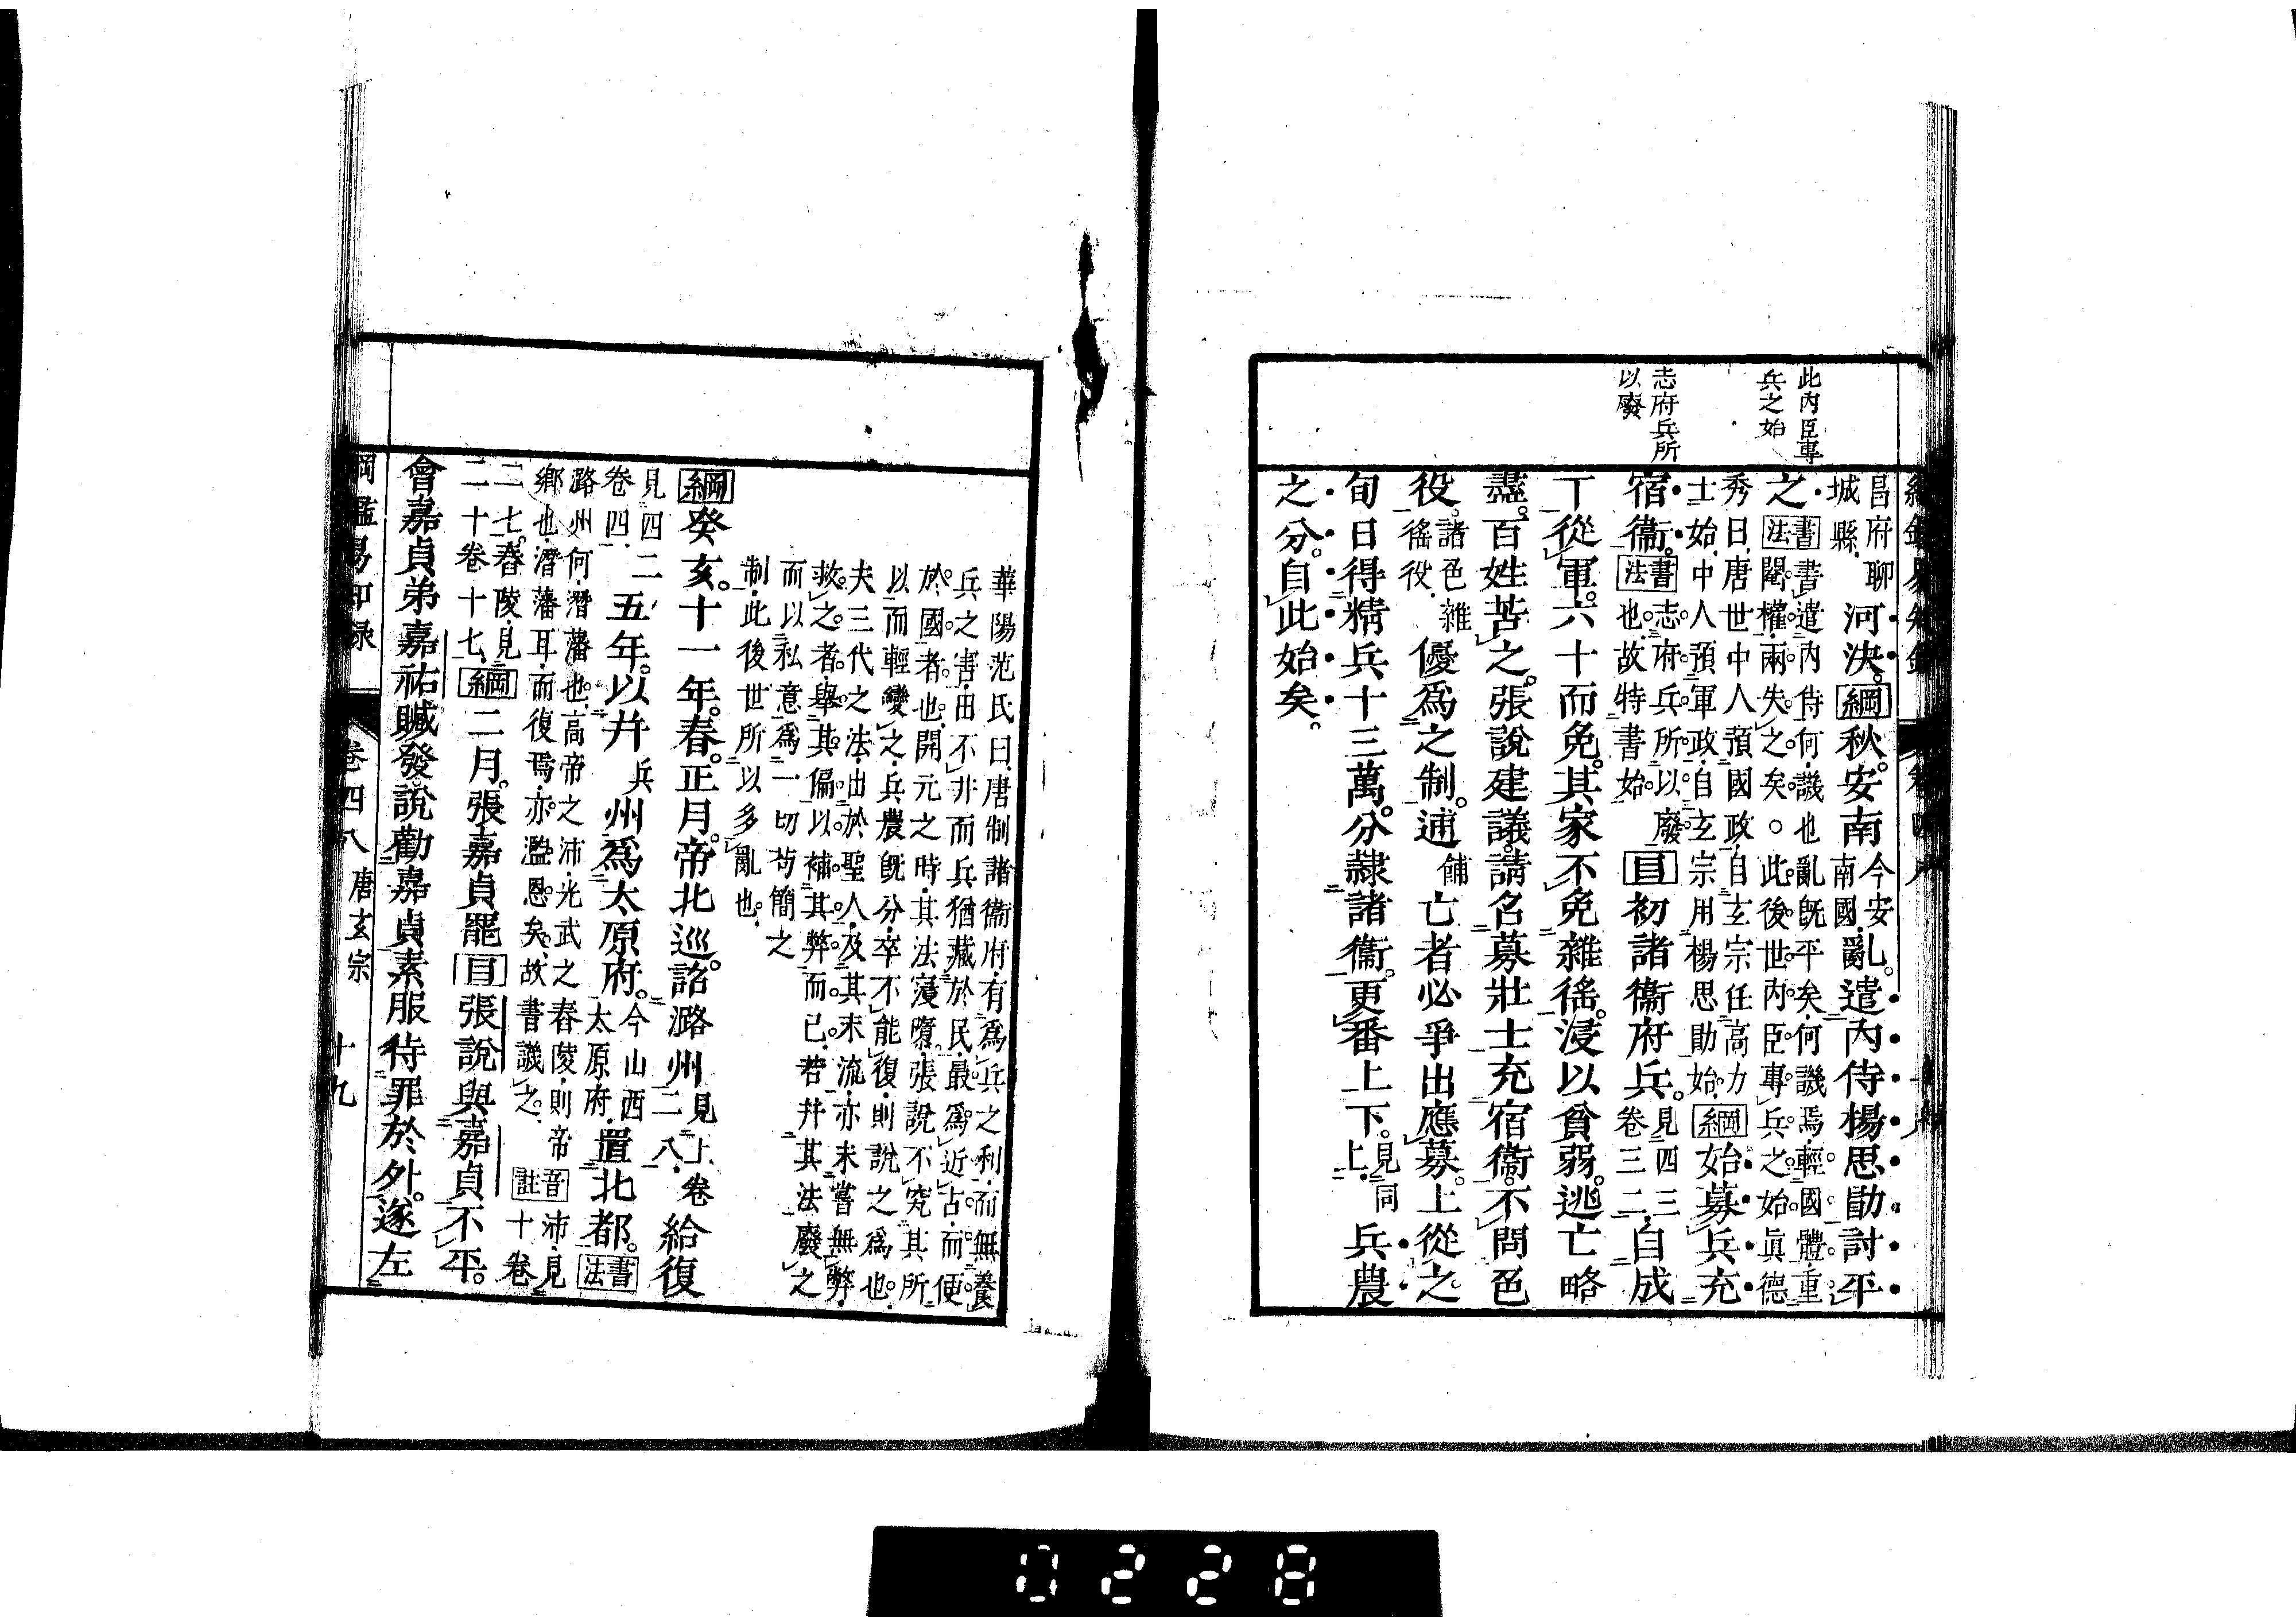 此內臣專
兵之始
志府兵所
以廢
昌府聊
城縣
河決綱秋安南
今安
南國
亂遣內侍楊思勖討平
之
書法
書遣內侍何譏也亂既平矣何譏焉輕國體重
閹權兩失之矣○此後世內臣專兵之始眞德
秀曰唐世中人預國政自玄宗任高力
士始中人預軍政自玄宗用楊思勖始
綱始募兵充
宿衞
書法
志府兵所以廢
也故特書始
目初諸衞府兵
見四三
卷三二
自成
丁從軍六十而免其家不免雜徭浸以貧弱逃亡略
盡百姓苦之張說建議請名募壯士充宿衞不問色
役
諸色雜
徭役
優爲之制逋
餔
亡者必爭出應募上從之
旬日得精兵十三萬分隸諸衞更番上下
見同
上
兵農
之分自此始矣
華陽范氏曰唐制諸衞府有爲兵之利而無養
兵之害田不井而兵猶藏於民最爲近古而便
於國者也開元之時其法寖隳張說不究其所
以而輕變之兵農既分卒不能復則說之爲也
夫三代之法出於聖人及其末流亦未嘗無弊
救之者舉其偏以補其弊而已若幷其法廢之
而以私意爲一切苟簡之
制此後世所以多亂也
綱癸亥十一年春正月帝北巡詔潞州
見上卷
二八
給復
見四二
卷四
五年以幷
兵
州爲太原府
今山西
太原府
置北都
書法
潞州何潛藩也高帝之沛光武之舂陵則帝
鄉也潛藩耳而復焉亦濫恩矣故書譏之
音註
沛見
十卷
二七舂陵見
二十卷十七
綱二月張嘉貞罷目張說與嘉貞不平
會嘉貞弟嘉祐贓發說勸嘉貞素服待罪於外遂左
綱鑑易知錄
卷四八
唐玄宗
十九
0228